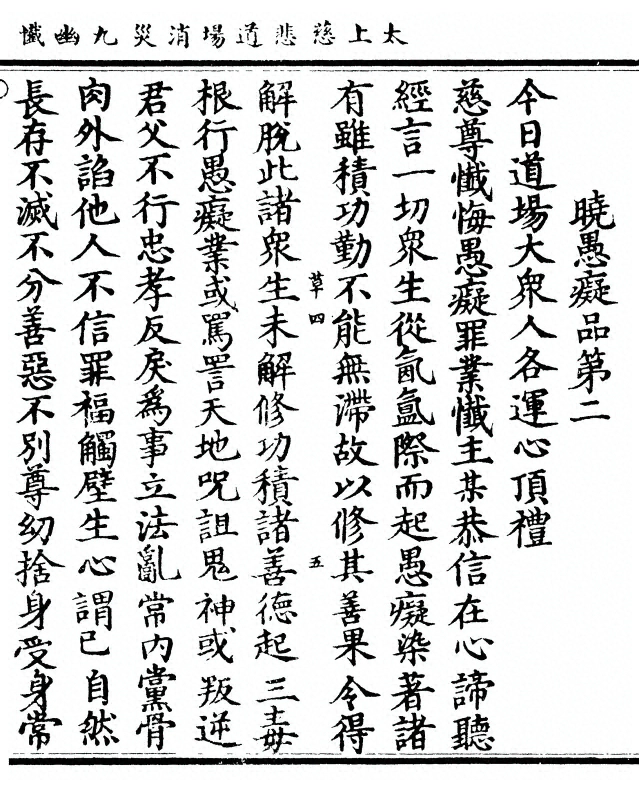 太上慈悲道場消災九幽懺
曉愚癡品第二
今日道場大衆人各運心頂禮
慈尊懺悔愚癡罪業懺主某恭信在心諦聽
經言一切衆生從氤氳際而起愚癡染著諸
有雖積功勤不能無滯故以修其善果令得
草四
五
解脫此諸衆生未解修功積諸善德起三毒
根行愚癡業或罵詈天地呪詛鬼神或叛逆
君父不行忠孝反戾爲事立法亂常內黨骨
肉外諂他人不信罪福觸壁生心謂已自然
長存不滅不分善惡不別尊幼捨身受身常